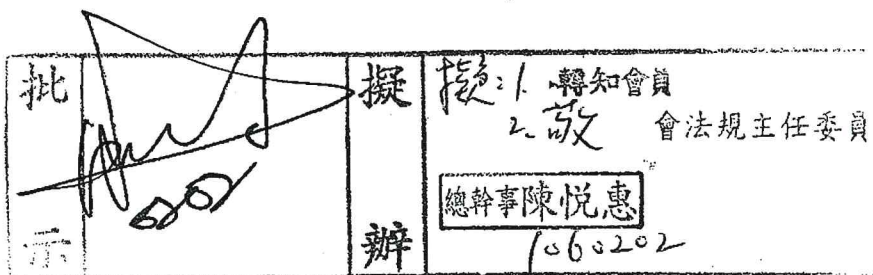 批示
擬辦
擬:1. 轉知會員
2. 敬會法規主任委員
總幹事陳悅惠
1060202